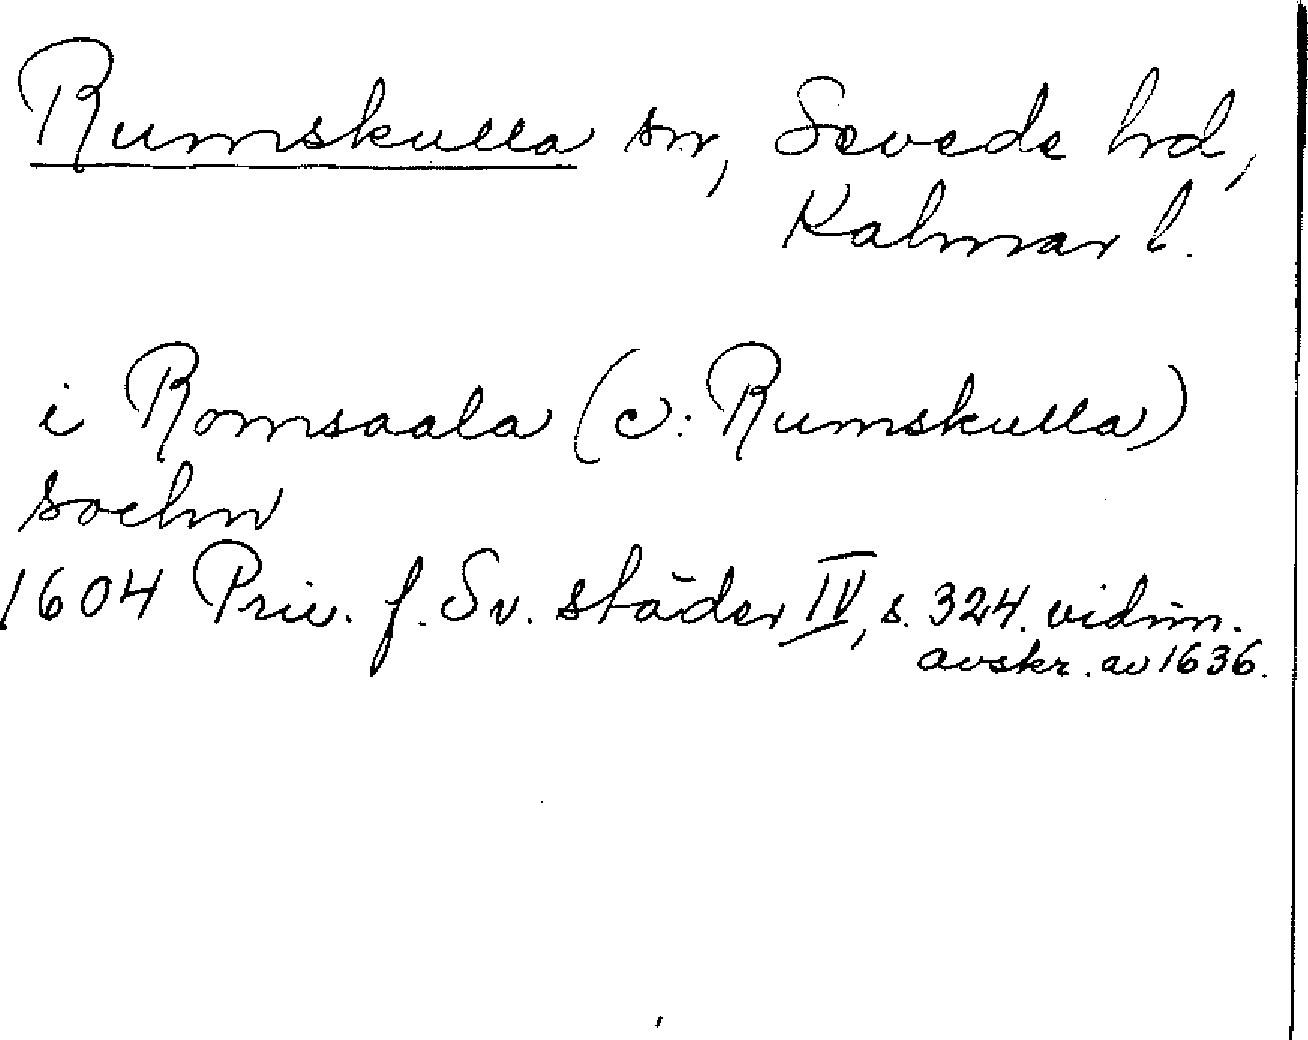 Rumskulla sn, Sevede hd,
Kalmar l.
i Romsaala (ɔ: Rumskulla)
sochn
1604 Priv. f. Sv. städer IV, s. 324. vidim.
avskr. av 1636.